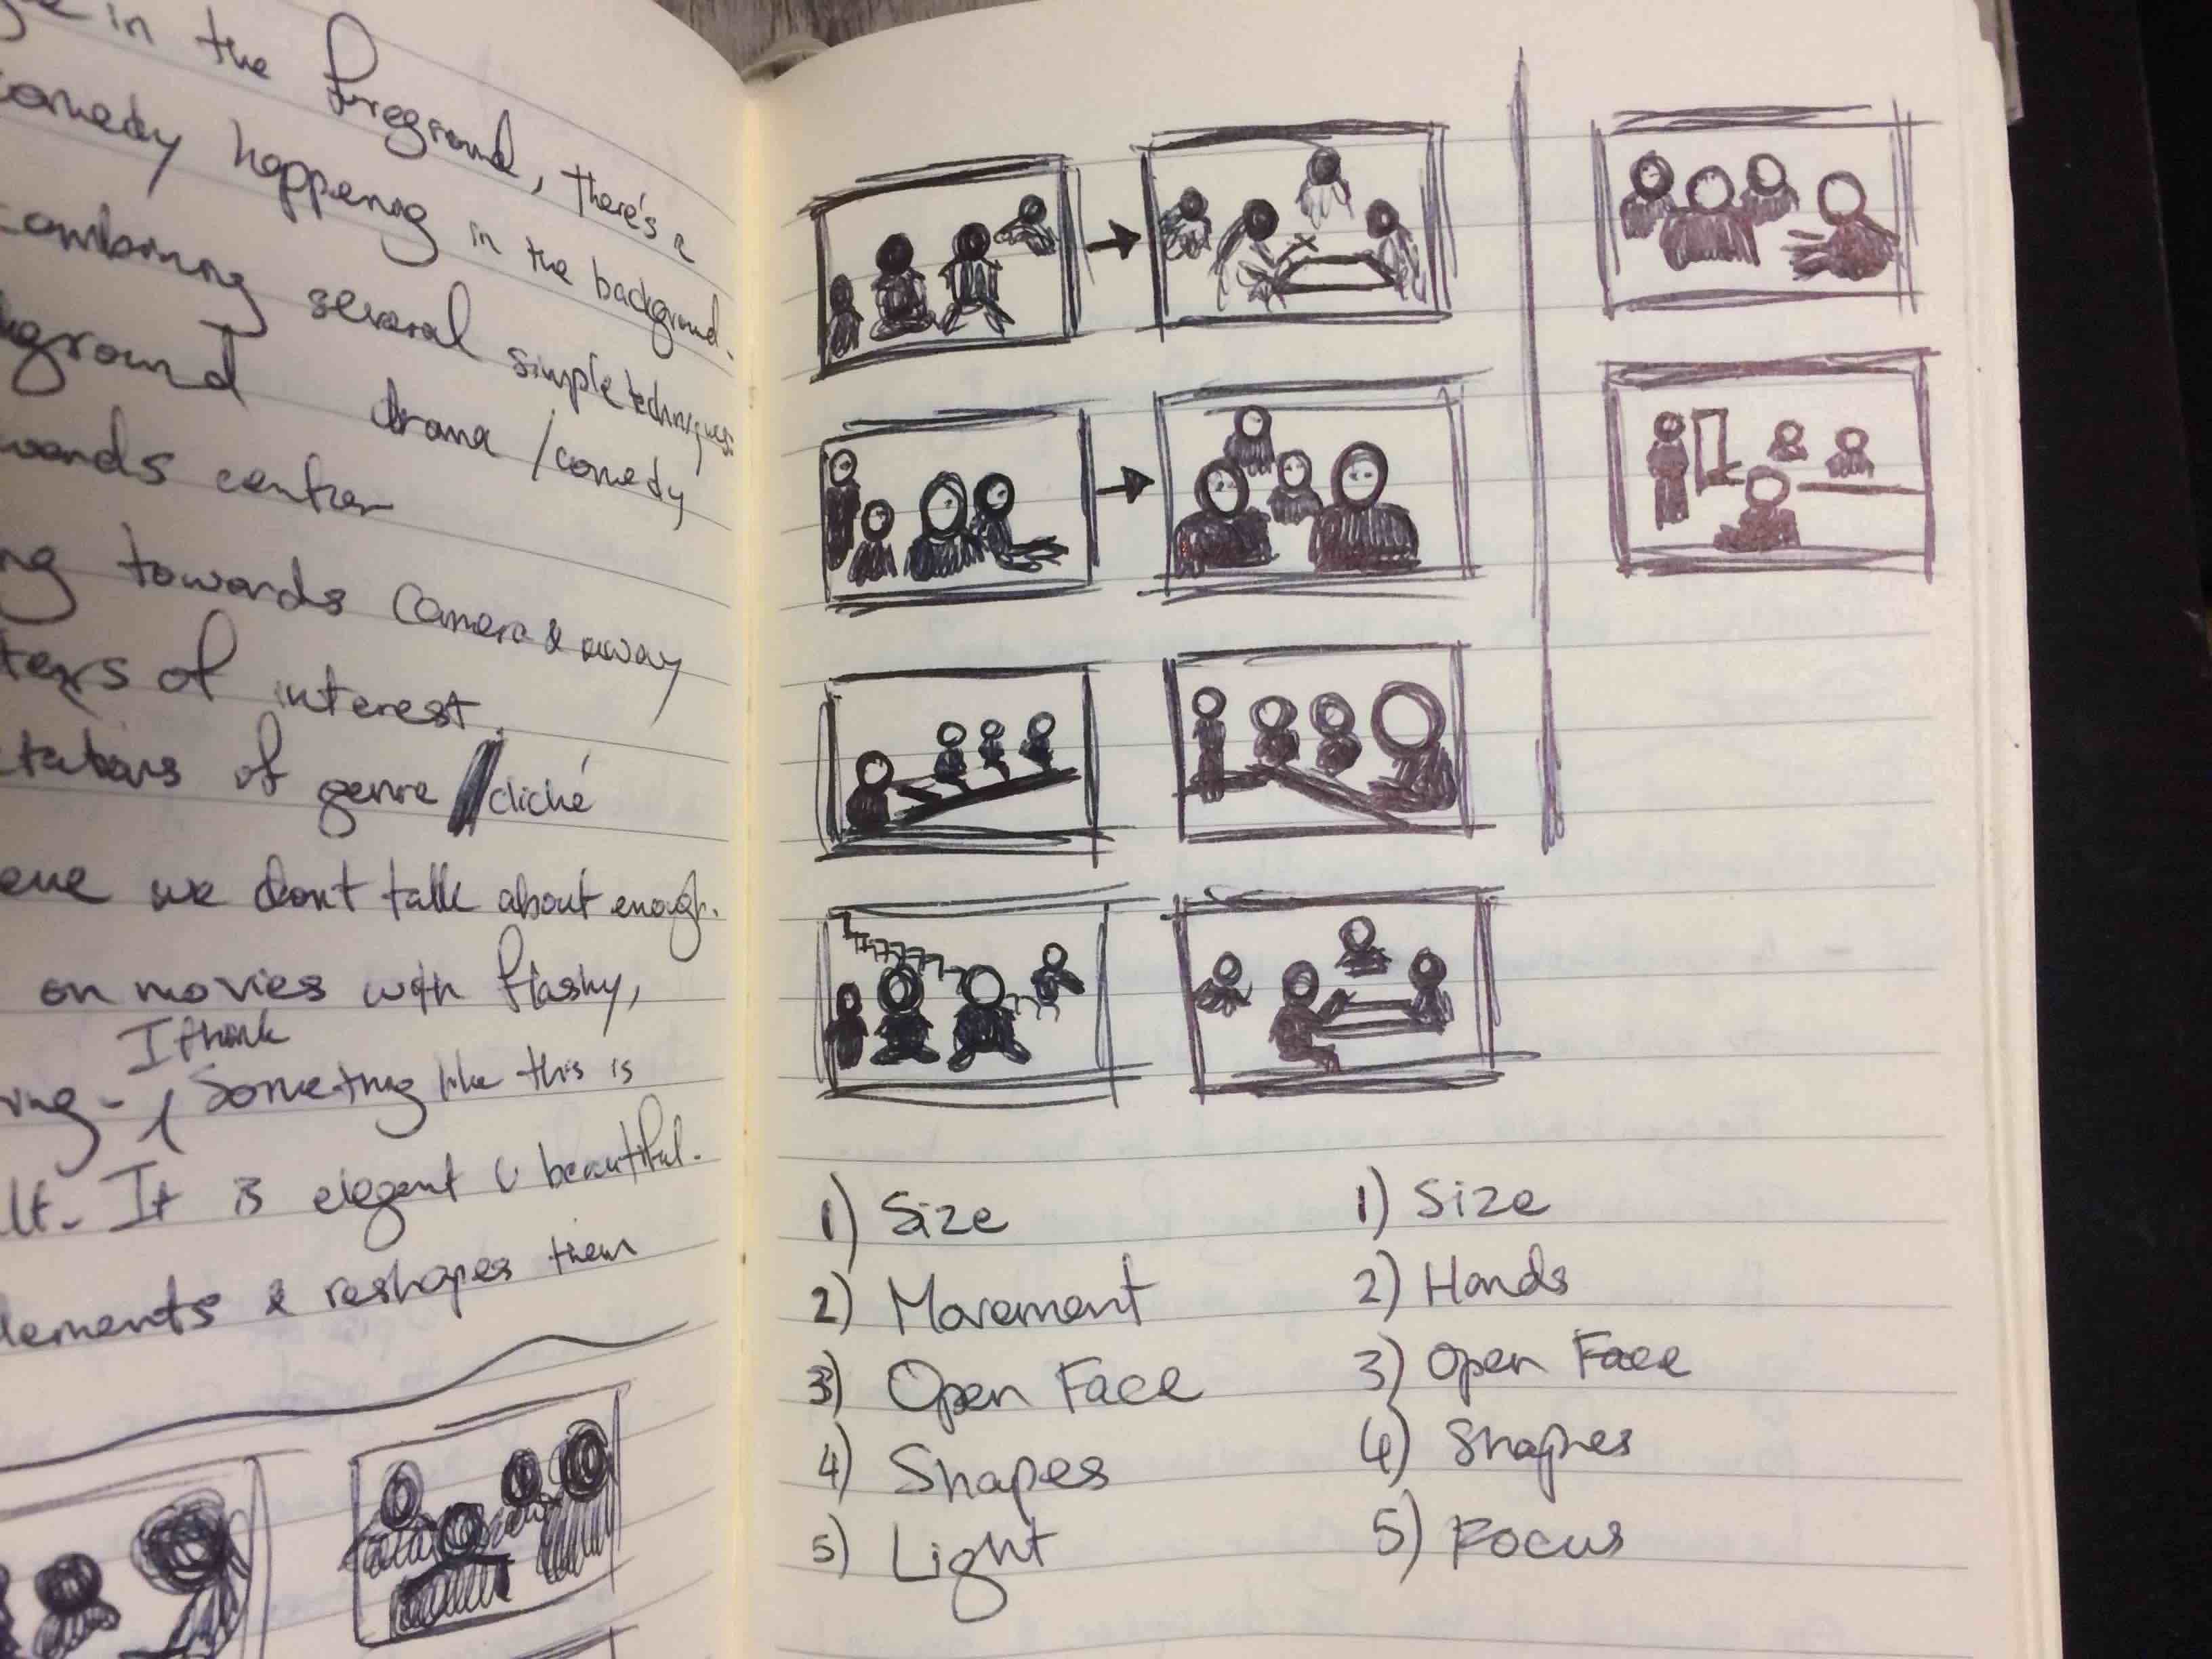 in the foreground, there's a
comedy happening in the background.
combining several simple techniques
ground drama / comedy
wards center
ng towards camera & away
ters of interest.
tations of genre / cliché
we don't talk about enough.
on movies with flashy,
I think
ing - Something like this is
lt. It is elegant & beautiful.
lements & reshapes them
1) Size
2) Movement
3) Open Face
4) Shapes
5) Light
1) Size
2) Hands
3) Open Face
4) Shapes
5) Focus